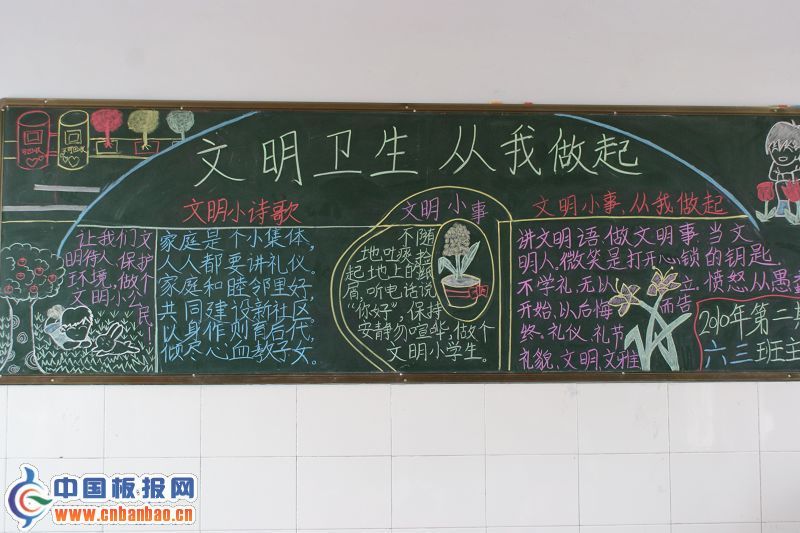 文明卫生 从我做起
可回收
不可回收
让我们文
明待人,保护
环境,做个
文明小公
民!
文明小诗歌
家庭是个小集体,
人人都要讲礼仪。
家庭和睦邻里好,
共同建设新社区
以身作则育后代,
倾尽心血教子女。
文明小事
不随
地吐痰,捡
起地上的纸
屑,听电话说
“你好”,保持
安静勿喧华,做个
文明小学生。
文明小事、从我做起
讲文明语,做文明事,当文
明人。微笑是打开心锁的钥匙
不学礼,无以立,愤怒从愚蠢
开始,以后悔而告
终。礼仪、礼节
礼貌、文明、文雅
2010年第二期
六三班主
中国板报网
www.cnbanbao.cn